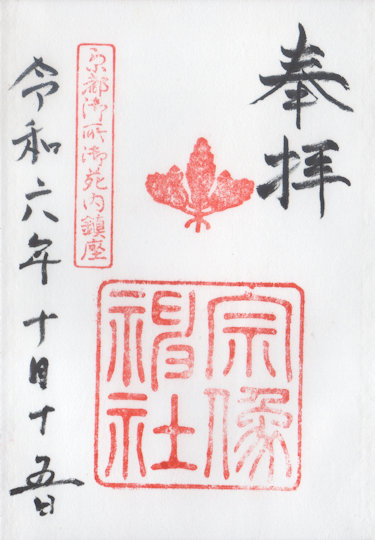 奉拝
宗像
神社
京都御所御苑内鎮座
令和六年十月十五日